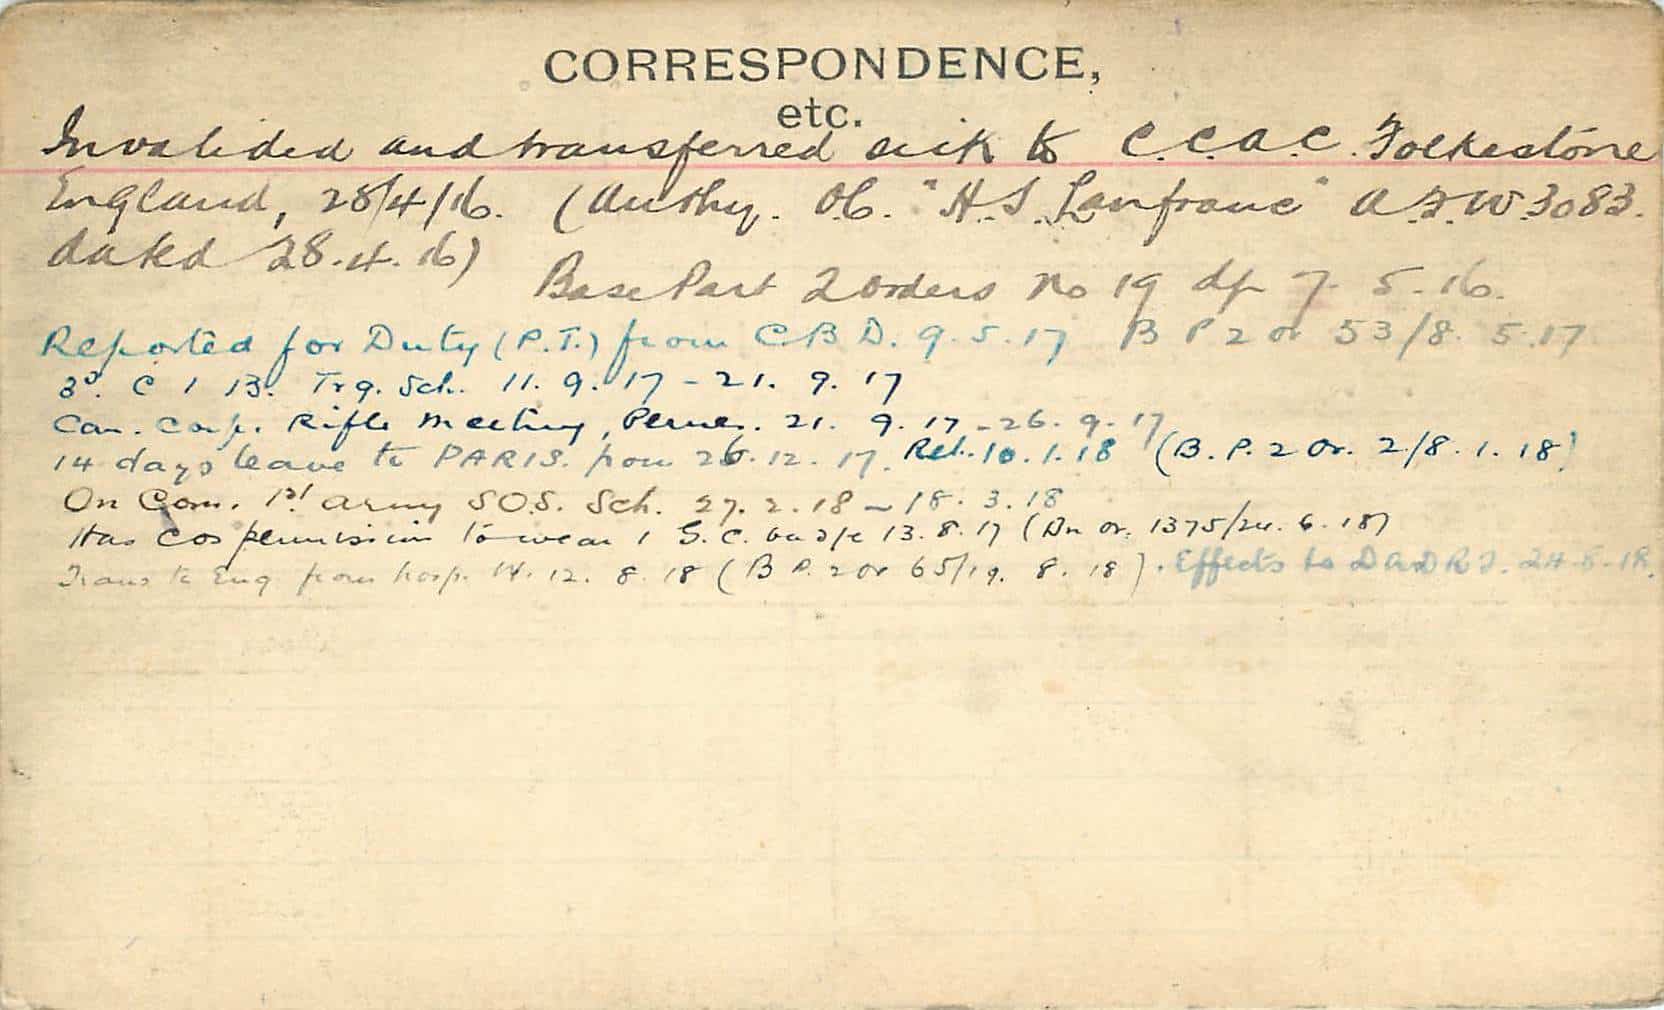 CORRESPONDENCE,
etc.
Invalided and transferred sick to C.C.A.C. Folkestone
England, 28/4/16. (Authy. O.C. "H.S. Lanfranc" A.F.W.3083.
dated 28.4.16)
Base Part 2 Orders No 19 d/- 7.5.16.
Reported for Duty (P.T.) from C B D. 9.5.17 B P 2 or 53/8.5.17
C 1 B. Trg. Sch. 11.9.17 - 21.9.17
Can. Corp. Rifle Meeting, Pernes. 21.9.17 - 26.9.17
14 days leave to PARIS. from 26.12.17. Ret. 10.1.18 (B.P.2 Or. 2/8.1.18)
On Com. 1st Army S.O.S. Sch. 27.2.18 - 18.3.18
Has COs permission to wear 1 G.C. badge 13.8.17 (Bn or. 1375/24.6.18)
Trans to Eng from hosp. 14.12.8.18 (B P. 2 or 65/19.8.18). Effects to D A D R T. 24.8.18.